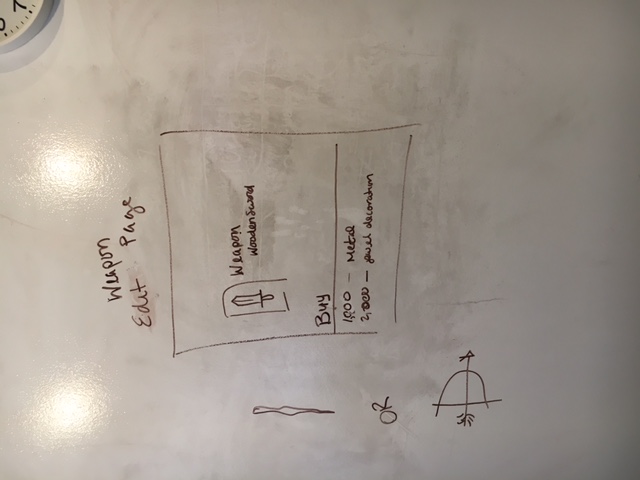 Weapon
Edit Page
Weapon
Wooden Sword
Buy
1,000 — Metal
2,000 — jewel decoration
OR
7